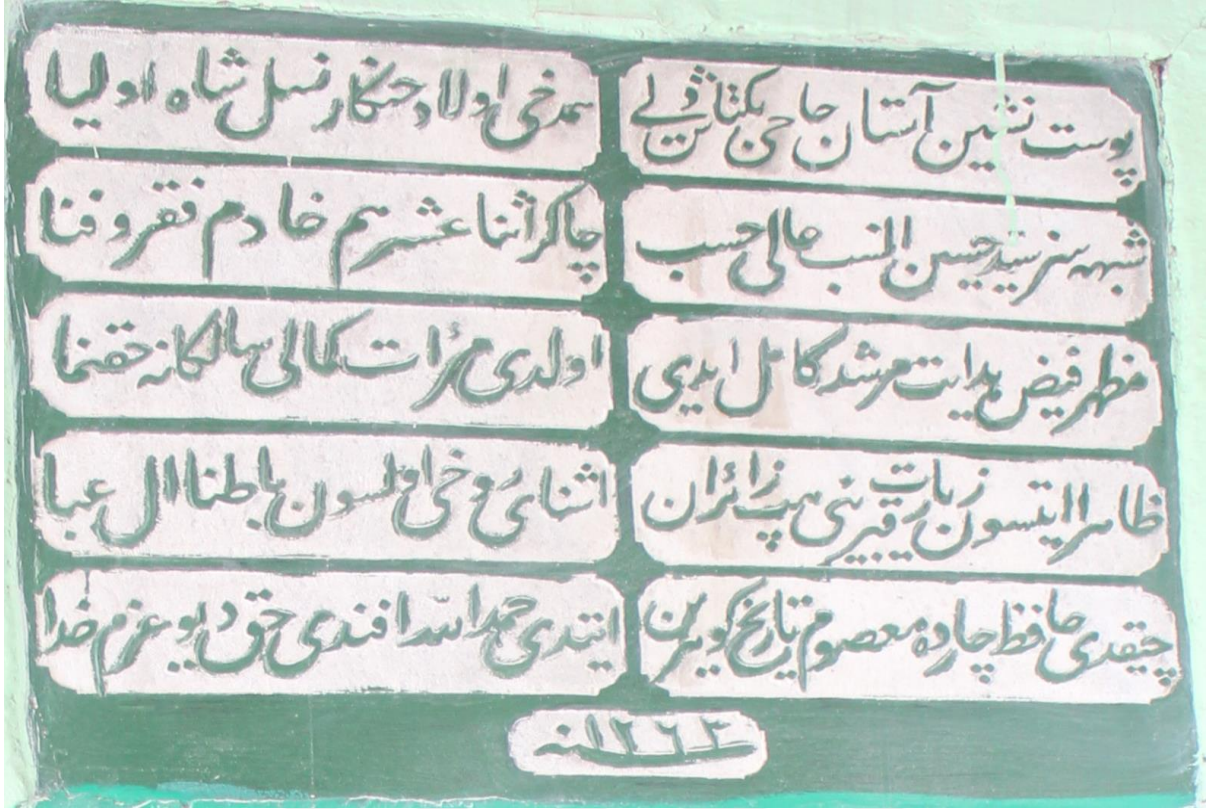 پوست نشین آستان حاجی بکتاش ولے
همدخی اولاد خنکار نسل شاه اولیا
شبهه سز سید حسین النسب عالی حسب
چاکر اثنا عشر هم خادم فقر و فنا
مظهر فیض هدایت مرشد کامل ایدی
اولدی مرٔات کمالی سالکانه حقنما
ظاهرا ایتسون زیارت قبرینی هب زائران
اثنای روخی اولسون باطنا ال عبا
چیقدی حافظ چارده معصوم تاریخ کوهرین
ایتدی حمدالله افندی حق دیو عزم خدا
سنه ١٢٦٣